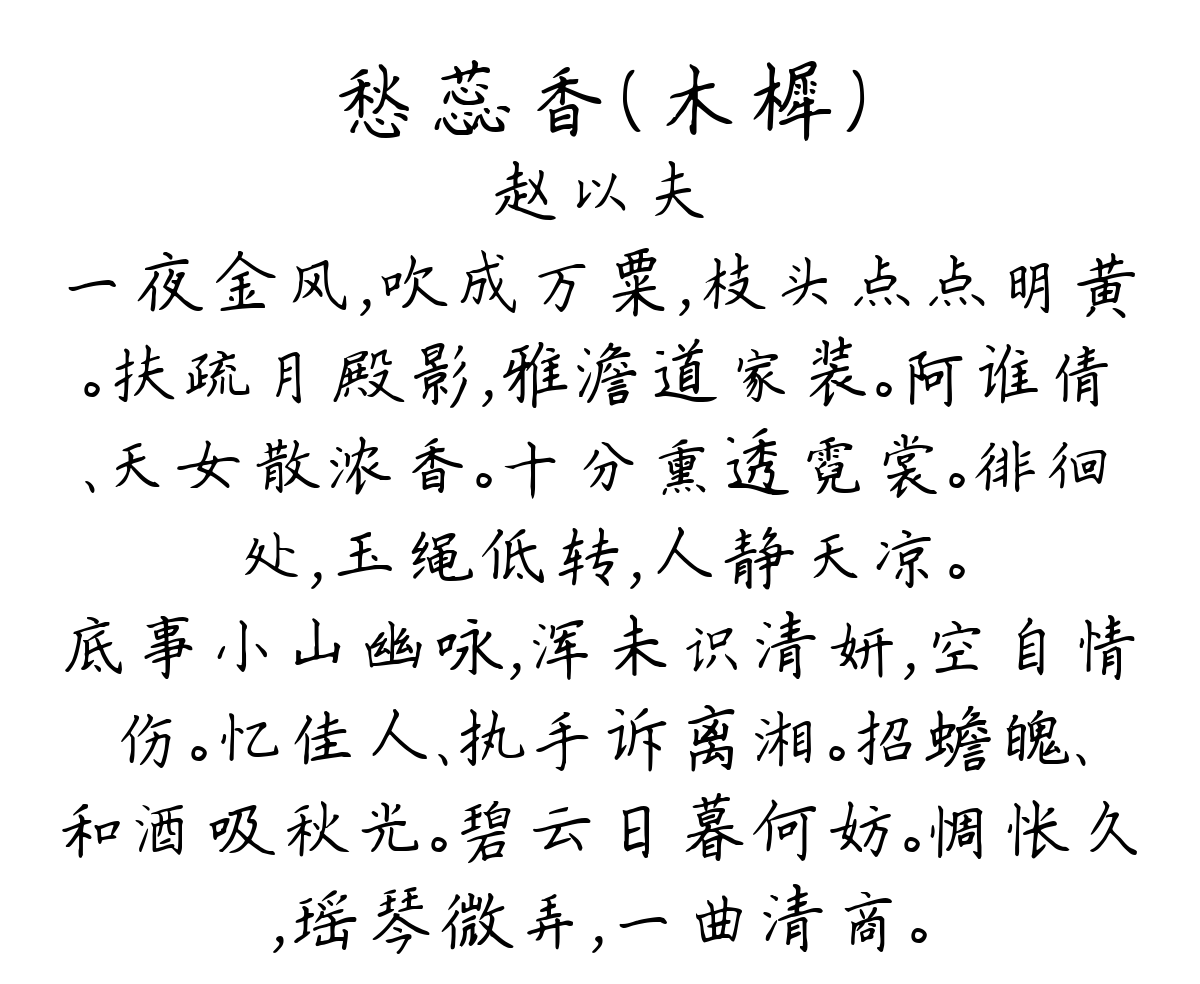 愁蕊香(木樨)
赵以夫
一夜金风,吹成万粟,枝头点点明黄
。扶疏月殿影,雅澹道家装。阿谁倩
、天女散浓香。十分熏透霓裳。徘徊
处,玉绳低转,人静天凉。
底事小山幽咏,浑未识清妍,空自情
伤。忆佳人、执手诉离湘。招蟾魄、
和酒吸秋光。碧云日暮何妨。惆怅久
,瑶琴微弄,一曲清商。